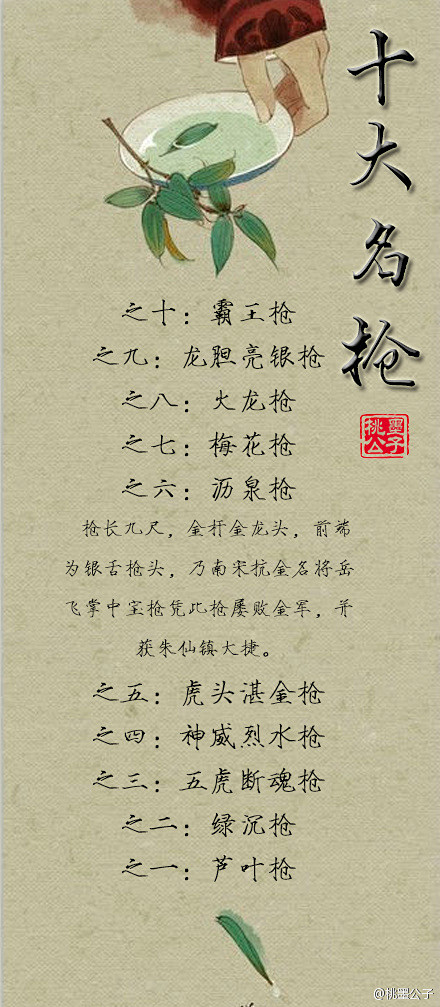 十大名枪
桃墨公子
之十：霸王枪
之九：龙胆亮银枪
之八：火龙枪
之七：梅花枪
之六：沥泉枪
枪长九尺，金杆金龙头，前端
为银舌枪头，乃南宋抗金名将岳
飞掌中宝枪凭此枪屡败金军，并
获朱仙镇大捷。
之五：虎头湛金枪
之四：神威烈水枪
之三：五虎断魂枪
之二：绿沉枪
之一：芦叶枪
@桃墨公子